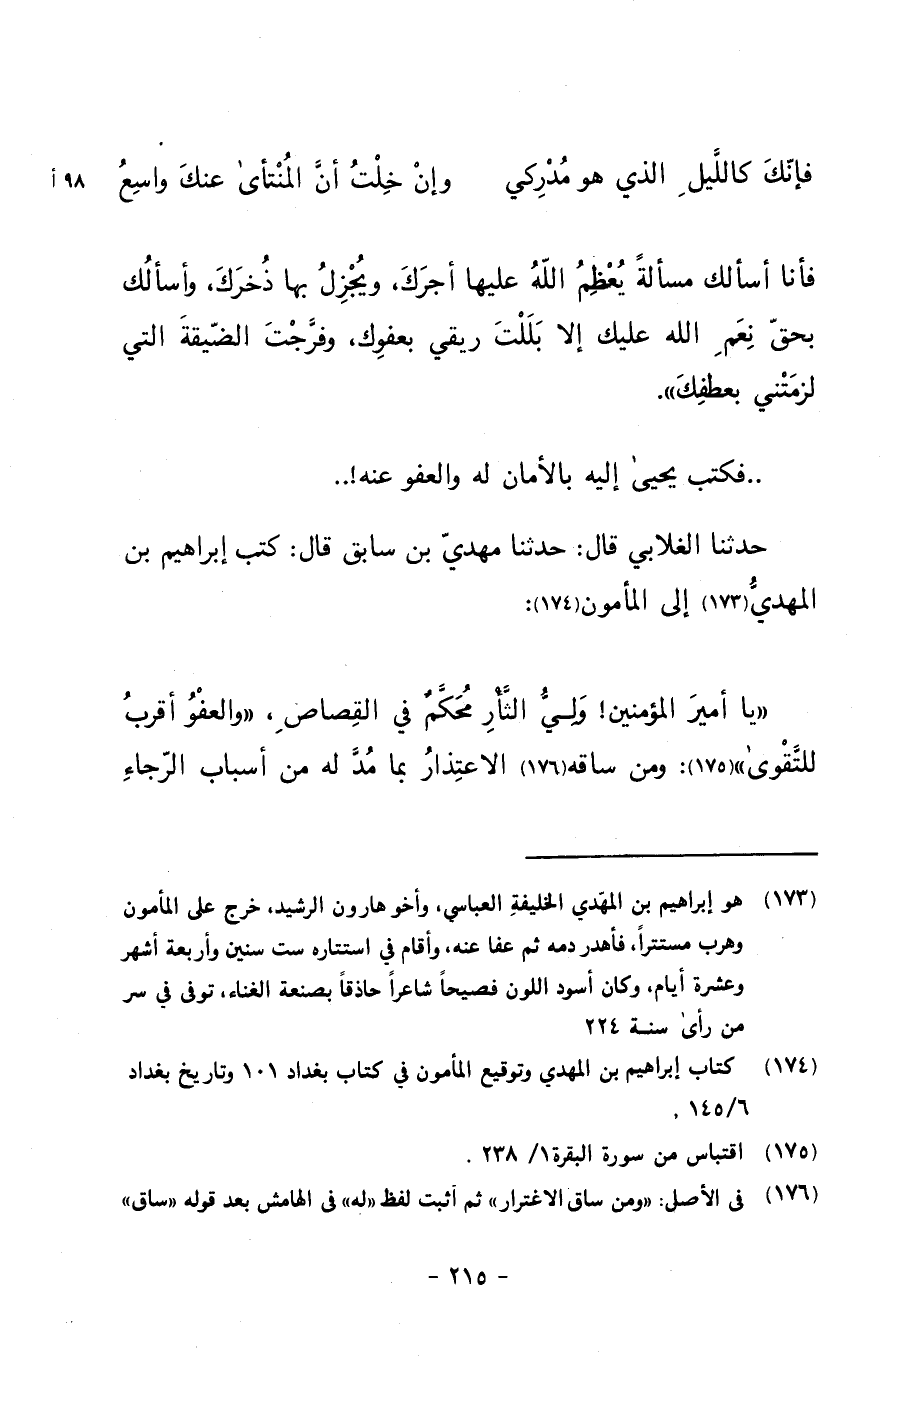 فإنّكَ كاللَّيلِ الذي هو مُدْرِكي وإنْ خِلْتُ أنَّ المُنْتأىٰ عنكَ واسِعُ ٩٨ أ
فأنا أسألك مسألةً يُعْظِمُ اللّهُ عليها أجرَكَ، ويُجْزِلُ بها ذُخرَكَ، وأسألُك
بحقّ نِعَمِ الله عليك إلا بَلَلْتَ ريقي بعفوِك، وفرَّجْتَ الضّيقةَ التي
لزمَتْني بعطفِكَ».
..فكتب يحيىٰ إليه بالأمان له والعفو عنه!..
حدثنا الغلابي قال: حدثنا مهديّ بن سابق قال: كتب إبراهيم بن
المهديُّ(١٧٣) إلى المأمون(١٧٤):
«يا أميرَ المؤمنين! وَلِيُّ الثَّأرِ مُحَكَّمٌ في القِصاصِ، «والعفْوُ أقربُ
للتَّقْوىٰ»(١٧٥): ومن ساقه(١٧٦) الاعتِذارُ بما مُدَّ له من أسباب الرّجاءِ
(١٧٣) هو إبراهيم بن المهدي الخليفةِ العباسي، وأخو هارون الرشيد، خرج على المأمون
وهرب مستتراً، فأهدر دمه ثم عفا عنه، وأقام في استتاره ست سنين وأربعة أشهر
وعشرة أيام، وكان أسود اللون فصيحاً شاعراً حاذقاً بصنعة الغناء، توفى في سر
من رأىٰ سنة ٢٢٤
(١٧٤) كتاب إبراهيم بن المهدي وتوقيع المأمون في كتاب بغداد ١٠١ وتاريخ بغداد
١٤٥/٦ .
(١٧٥) اقتباس من سورة البقرة١/ ٢٣٨ .
(١٧٦) فى الأصل: «ومن ساق الاغترار» ثم أثبت لفظ «له» فى الهامش بعد قوله «ساق»
- ٢١٥ -